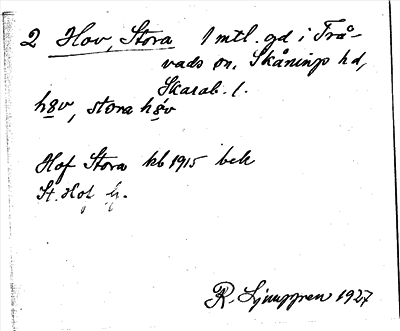 2 Hov, Stora 1 mtl. gd i Trå-
vads sn, Skånings hd,
Skarab. l.
Hof Stora kb 1915 bek
St. Hof
R. Ljunggren 1927